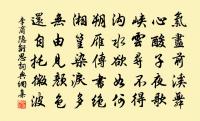 氣盡前溪舞
心酸子夜歌
峽雲尋不得
溝水欲如何
朔雁傳書絕
湘篁染淚多
無由見顏色
還自托微波
李商隱離思詞典網集